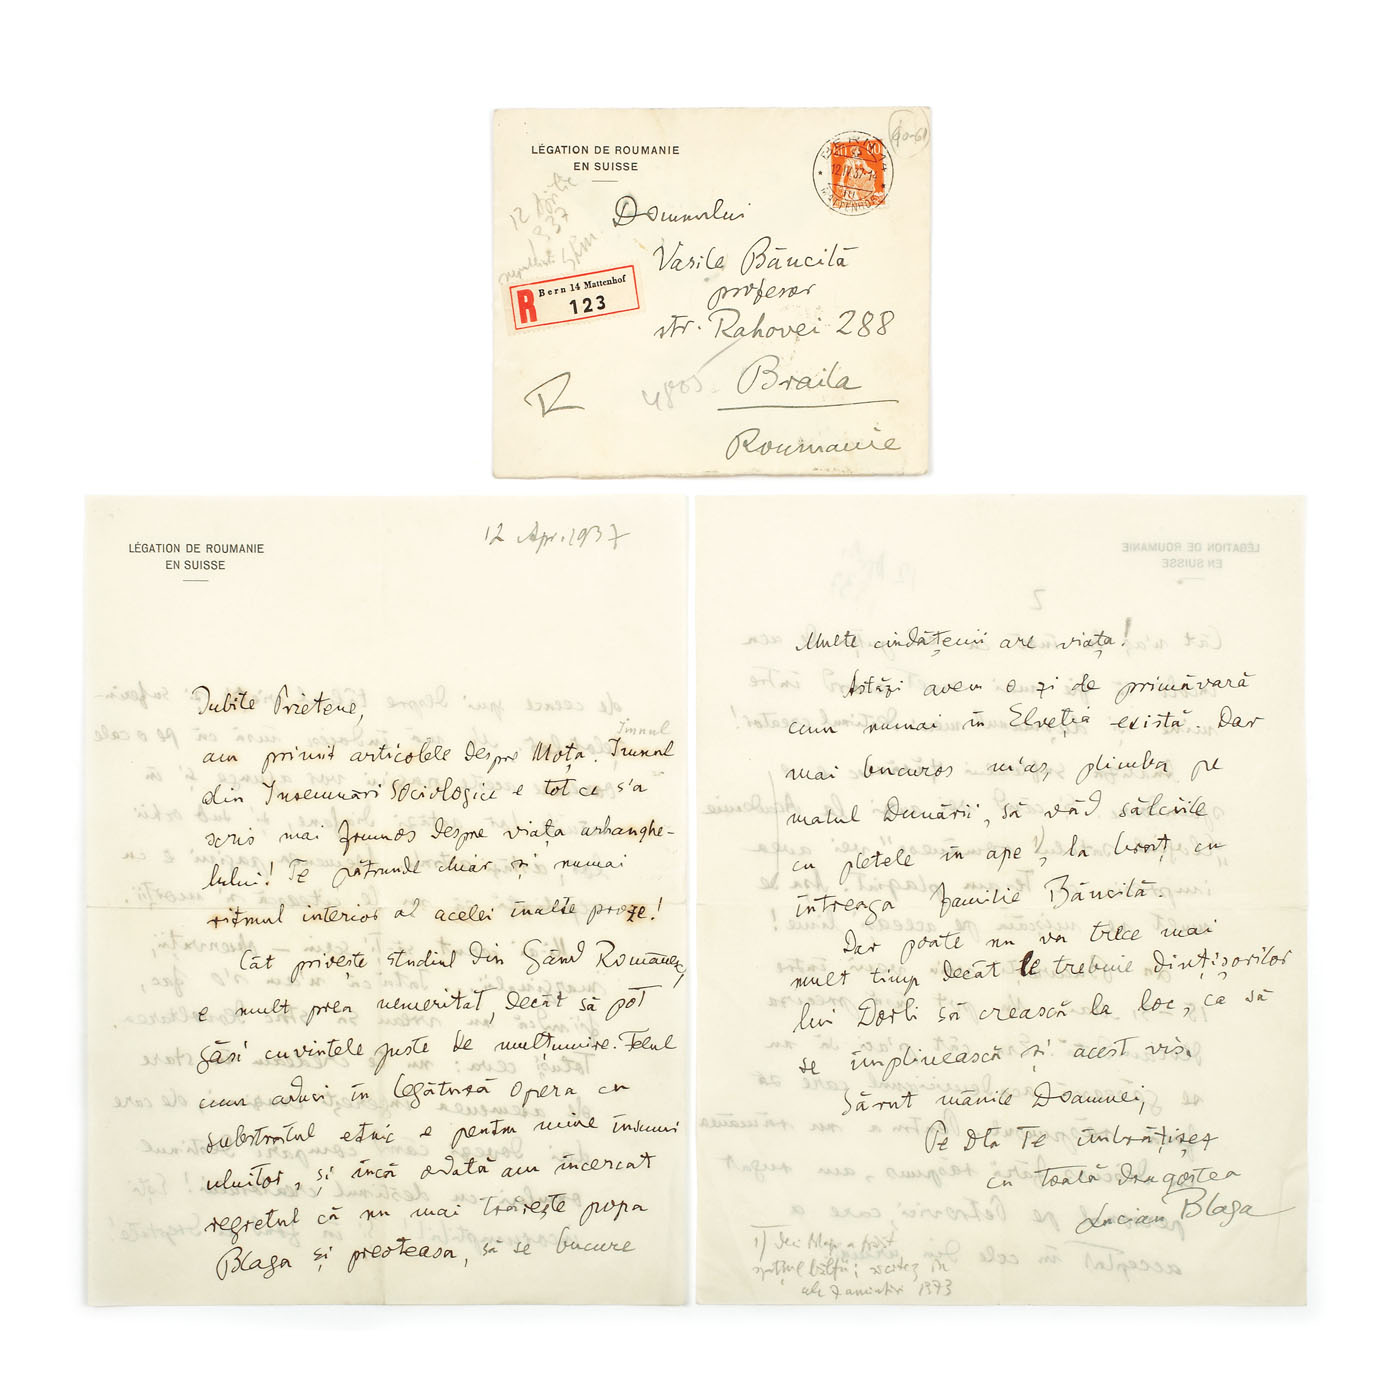 LÉGATION DE ROUMANIE
EN SUISSE
12 Aprilie
937
BERN 14
12.IV.37-14
MATTENHOF
R
Bern 14 Mattenhof
123
Domnului
Vasile Băncilă
profesor
str. Rahovei 288
Braila
Roumanie
R
4805
LÉGATION DE ROUMANIE
EN SUISSE
12 Apr. 1937
Iubite Prietene,
Imnul
am primit articolele despre Moța. Imnul
din Însemnări Sociologice e tot ce s'a
scris mai frumos despre viața arhanghe-
lului! Te pătrunde chiar și numai
ritmul interior al acelei înalte proze!
Cât privește studiul din Gând Românesc,
e mult prea nemeritat, decât să pot
găsi cuvintele juste de mulțumire. Felul
cum aduci în legătură opera cu
substratul etnic e pentru mine însumi
uluitor, și încă odată am încercat
regretul că nu mai trăiește popa
Blaga și preoteasa, să se bucure
2
Multe ciudățenii are viața!
Astăzi avem o zi de primăvară
cum numai în Elveția există. Dar
mai bucuros m'aș plimba pe
malul Dunării, să văd sălciile
cu pletele în ape, la braț cu
întreaga familie Băncilă.
Dar poate nu va trece mai
mult timp decât le trebuie dințișorilor
lui Dorli să crească la loc, ca să
se împlinească și acest vis.
Sărut mânile Doamnei,
Pe Dta Te îmbrățișez
cu toată dragostea
Lucian Blaga
1) Deci Blaga a fost
ale 7 amintiri 1973